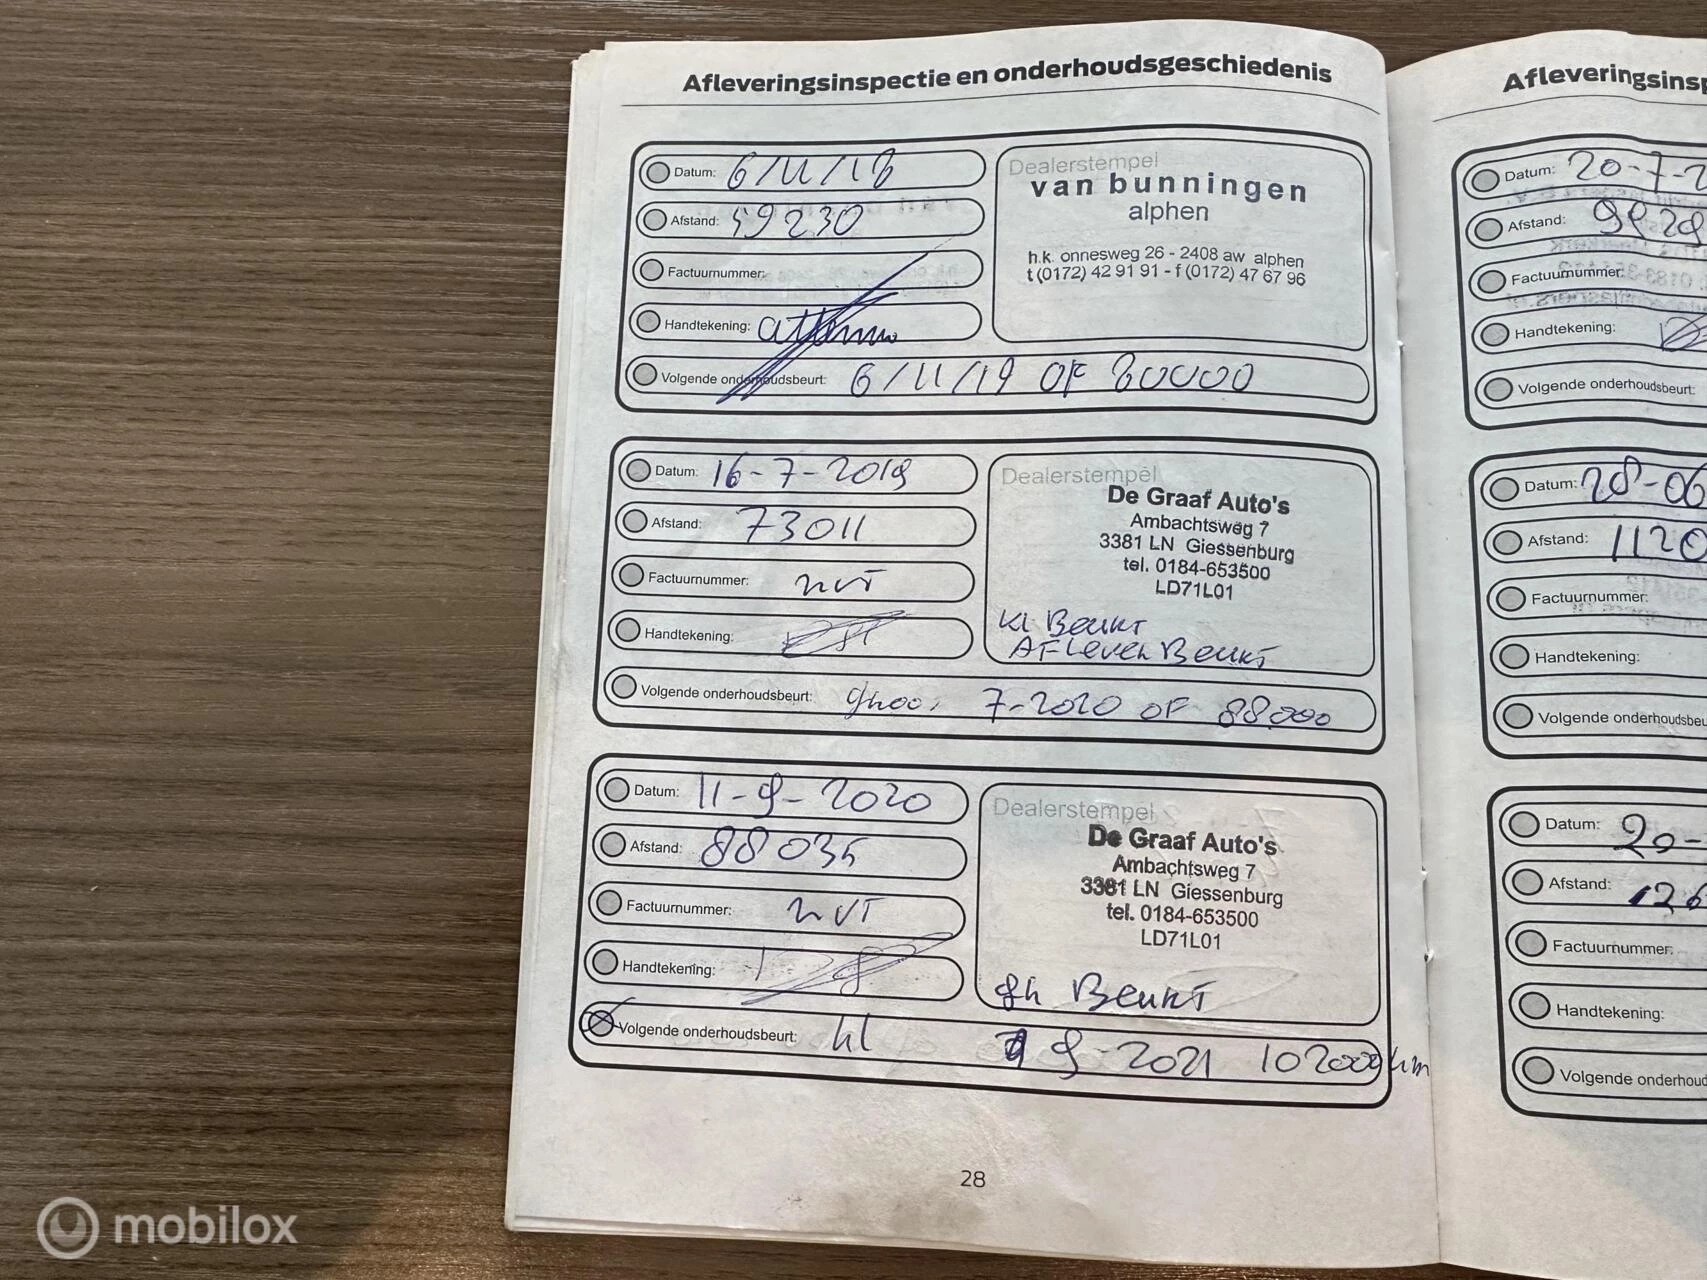 Afleveringsinspectie en onderhoudsgeschiedenis
Datum: 6/11/18
Afstand: 59230
Factuurnummer:
Handtekening:
Volgende onderhoudsbeurt: 6/11/19 OF 80000
Dealerstempel
van bunningen
alphen
h.k. onnesweg 26 - 2408 aw alphen
t (0172) 42 91 91 - f (0172) 47 67 96
Datum: 16-7-2019
Afstand: 73011
Factuurnummer: nvt
Handtekening:
Volgende onderhoudsbeurt: 7-2020 OF 88.000
Dealerstempel
De Graaf Auto's
Ambachtsweg 7
3381 LN Giessenburg
tel. 0184-653500
LD71L01
Kl Beurt
Aflever Beurt
Datum: 11-9-2020
Afstand: 88035
Factuurnummer: nvt
Handtekening:
Volgende onderhoudsbeurt: kl 9-2021 102000 km
Dealerstempel
De Graaf Auto's
Ambachtsweg 7
3381 LN Giessenburg
tel. 0184-653500
LD71L01
Beurt
28
Datum: 20-7-2
Afstand:
Factuurnummer:
Handtekening:
Volgende onderhoudsbeurt:
Datum: 28-06
Afstand: 1120
Factuurnummer:
Handtekening:
Datum: 20-
Afstand: 126
Factuurnummer:
Handtekening:
mobilox